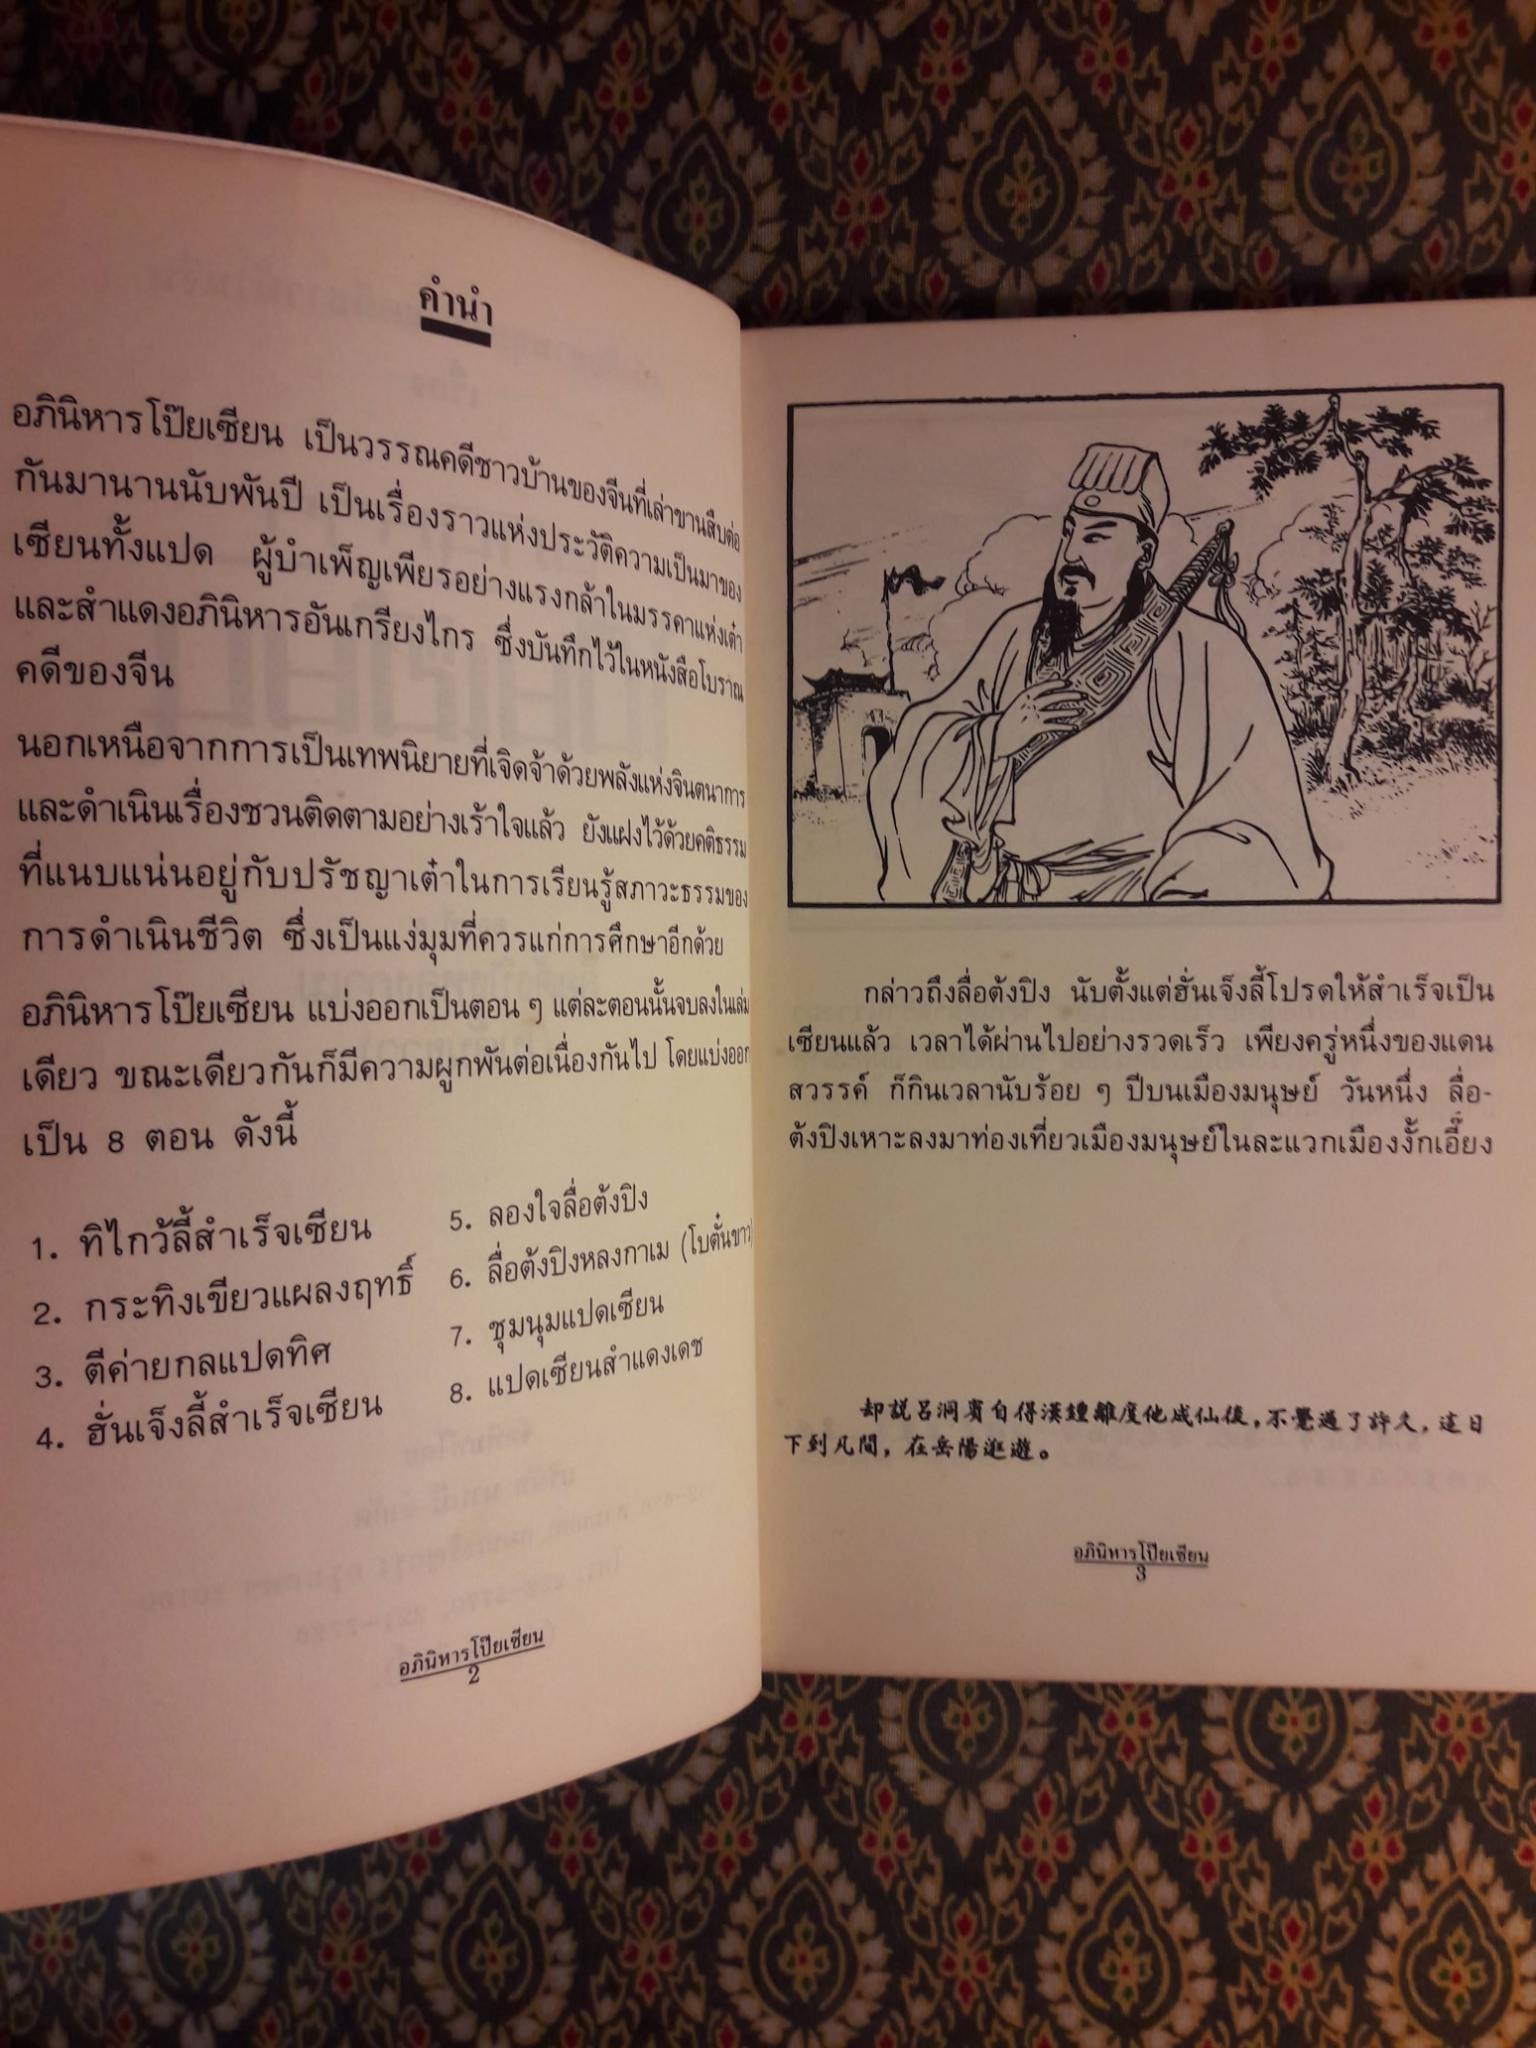 คำนำ
อภินิหารโป๊ยเซียน เป็นวรรณคดีชาวบ้านของจีนที่เล่าขานสืบต่อ
กันมานานนับพันปี เป็นเรื่องราวแห่งประวัติความเป็นมาของ
เซียนทั้งแปด ผู้บำเพ็ญเพียรอย่างแรงกล้าในมรรคาแห่งเต๋า
และสำแดงอภินิหารอันเกรียงไกร ซึ่งบันทึกไว้ในหนังสือโบราณ
คดีของจีน
นอกเหนือจากการเป็นเทพนิยายที่เจิดจ้าด้วยพลังแห่งจินตนาการ
และดำเนินเรื่องชวนติดตามอย่างเร้าใจแล้ว ยังแฝงไว้ด้วยคติธรรม
ที่แนบแน่นอยู่กับปรัชญาเต๋าในการเรียนรู้สภาวะธรรมของ
การดำเนินชีวิต ซึ่งเป็นแง่มุมที่ควรแก่การศึกษาอีกด้วย
อภินิหารโป๊ยเซียน แบ่งออกเป็นตอน ๆ แต่ละตอนนั้นจบลงในเล่ม
เดียว ขณะเดียวกันก็มีความผูกพันต่อเนื่องกันไป โดยแบ่งออก
เป็น 8 ตอน ดังนี้
1. ทิไกว้ลี้สำเร็จเซียน
2. กระทิงเขียวแผลงฤทธิ์
3. ตีค่ายกลแปดทิศ
4. ฮั่นเจ็งลี้สำเร็จเซียน
5. ลองใจลื่อต้งปิง
6. ลื่อต้งปิงหลงกาเม (โบตั๋นขาว)
7. ชุมนุมแปดเซียน
8. แปดเซียนสำแดงเดช
อภินิหารโป๊ยเซียน
2
กล่าวถึงลื่อต้งปิง นับตั้งแต่ฮั่นเจ็งลี้โปรดให้สำเร็จเป็น
เซียนแล้ว เวลาได้ผ่านไปอย่างรวดเร็ว เพียงครู่หนึ่งของแดน
สวรรค์ ก็กินเวลานับร้อย ๆ ปีบนเมืองมนุษย์ วันหนึ่ง ลื่อ-
ต้งปิงเหาะลงมาท่องเที่ยวเมืองมนุษย์ในละแวกเมืองงั้กเอี๊ยง
却説呂洞賓自得漢鍾離度他成仙後，不覺過了許久，這日
下到凡間，在岳陽逛遊。
อภินิหารโป๊ยเซียน
3